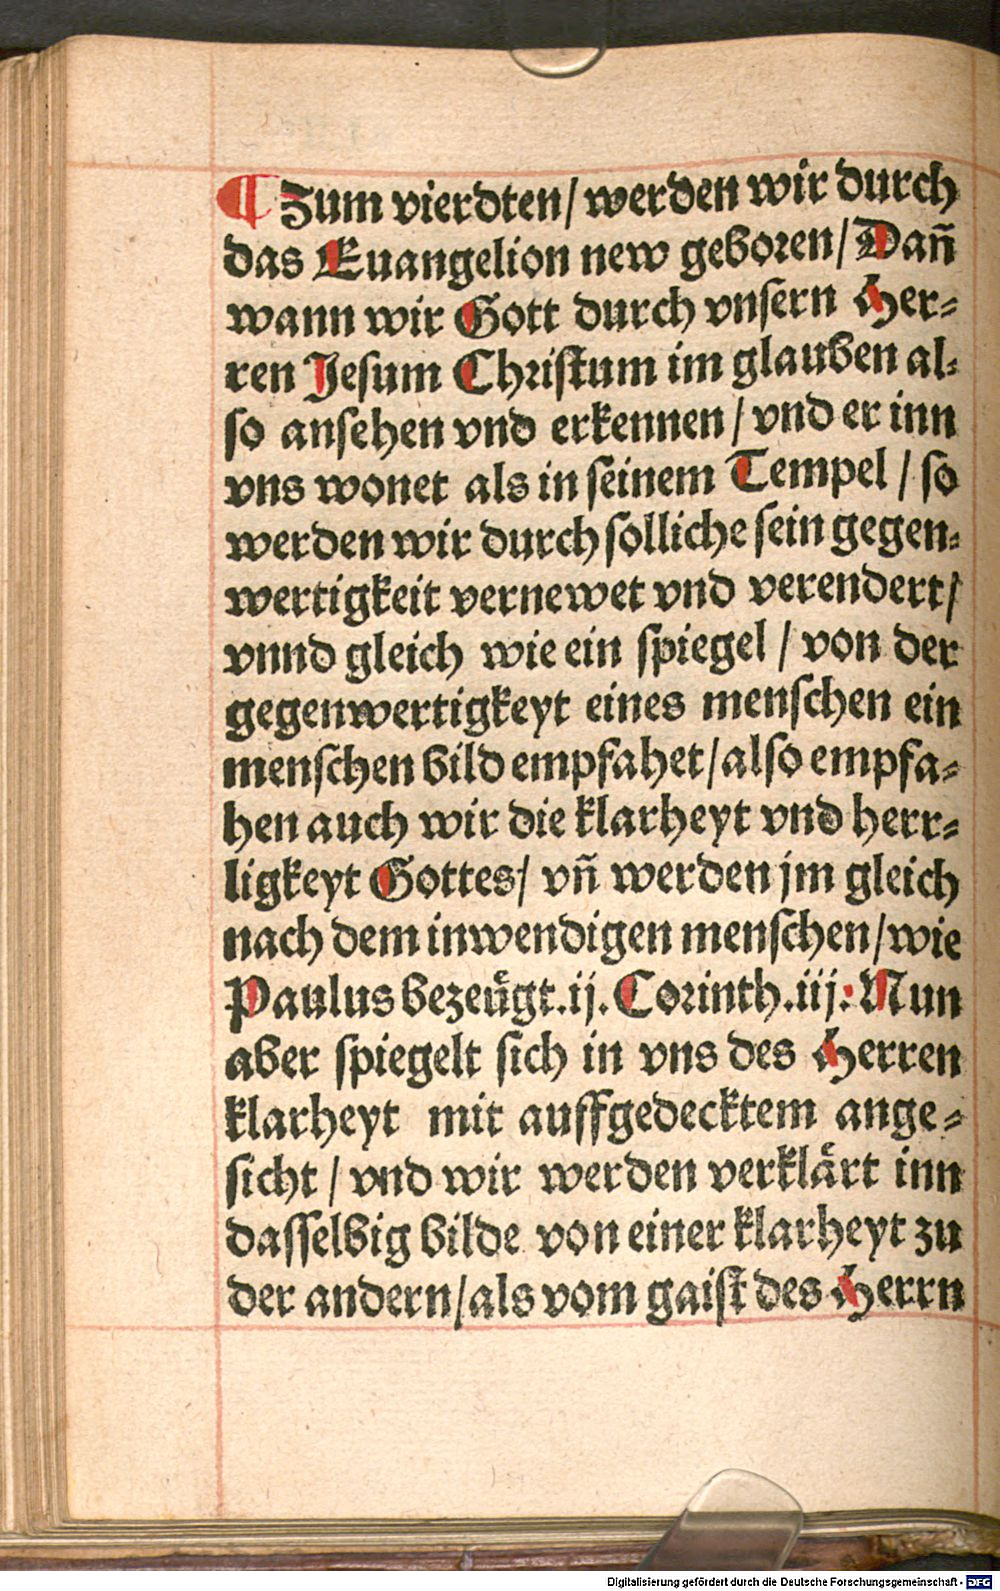 ¶ Zum vierdten/ werden wir durch
das Euangelion new geboren/ Dañ
wann wir Gott durch vnsern Her-
ren Jesum Christum im glauben al-
so ansehen vnd erkennen / vnd er inn
vns wonet als in seinem Tempel / so
werden wir durch solliche sein gegen-
wertigkeit vernewet vnd verendert/
vnnd gleich wie ein spiegel / von der
gegenwertigkeyt eines menschen ein
menschen bild empfahet/ also empfa-
hen auch wir die klarheyt vnd herr-
ligkeyt Gottes/ vñ werden jm gleich
nach dem inwendigen menschen/ wie
Paulus bezeügt .ij. Corinth .iij: Nun
aber spiegelt sich in vns des Herren
klarheyt mit auffgedecktem ange-
sicht / vnd wir werden verklärt inn
dasselbig bilde von einer klarheyt zu
der andern/ als vom gaist des Herrn
Digitalisierung gefördert durch die Deutsche Forschungsgemeinschaft - DFG